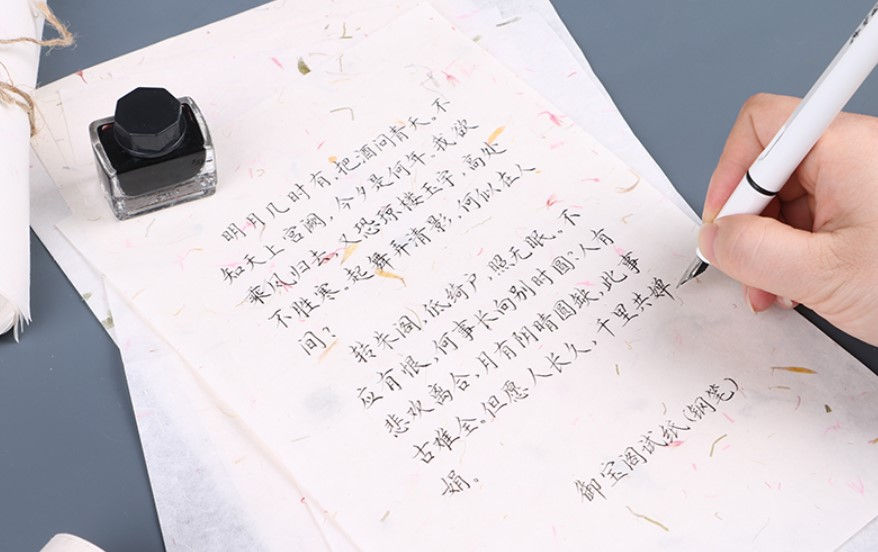 明月几时有,把酒问青天。不
知天上宫阙,今夕是何年。我欲
乘风归去,又恐琼楼玉宇,高处
不胜寒。起舞弄清影,何似在人
间?
转朱阁,低绮户,照无眠。不
应有恨,何事长向别时圆?人有
悲欢离合,月有阴晴圆缺,此事
古难全。但愿人长久,千里共婵
娟。
御宝阁试纸(钢笔)